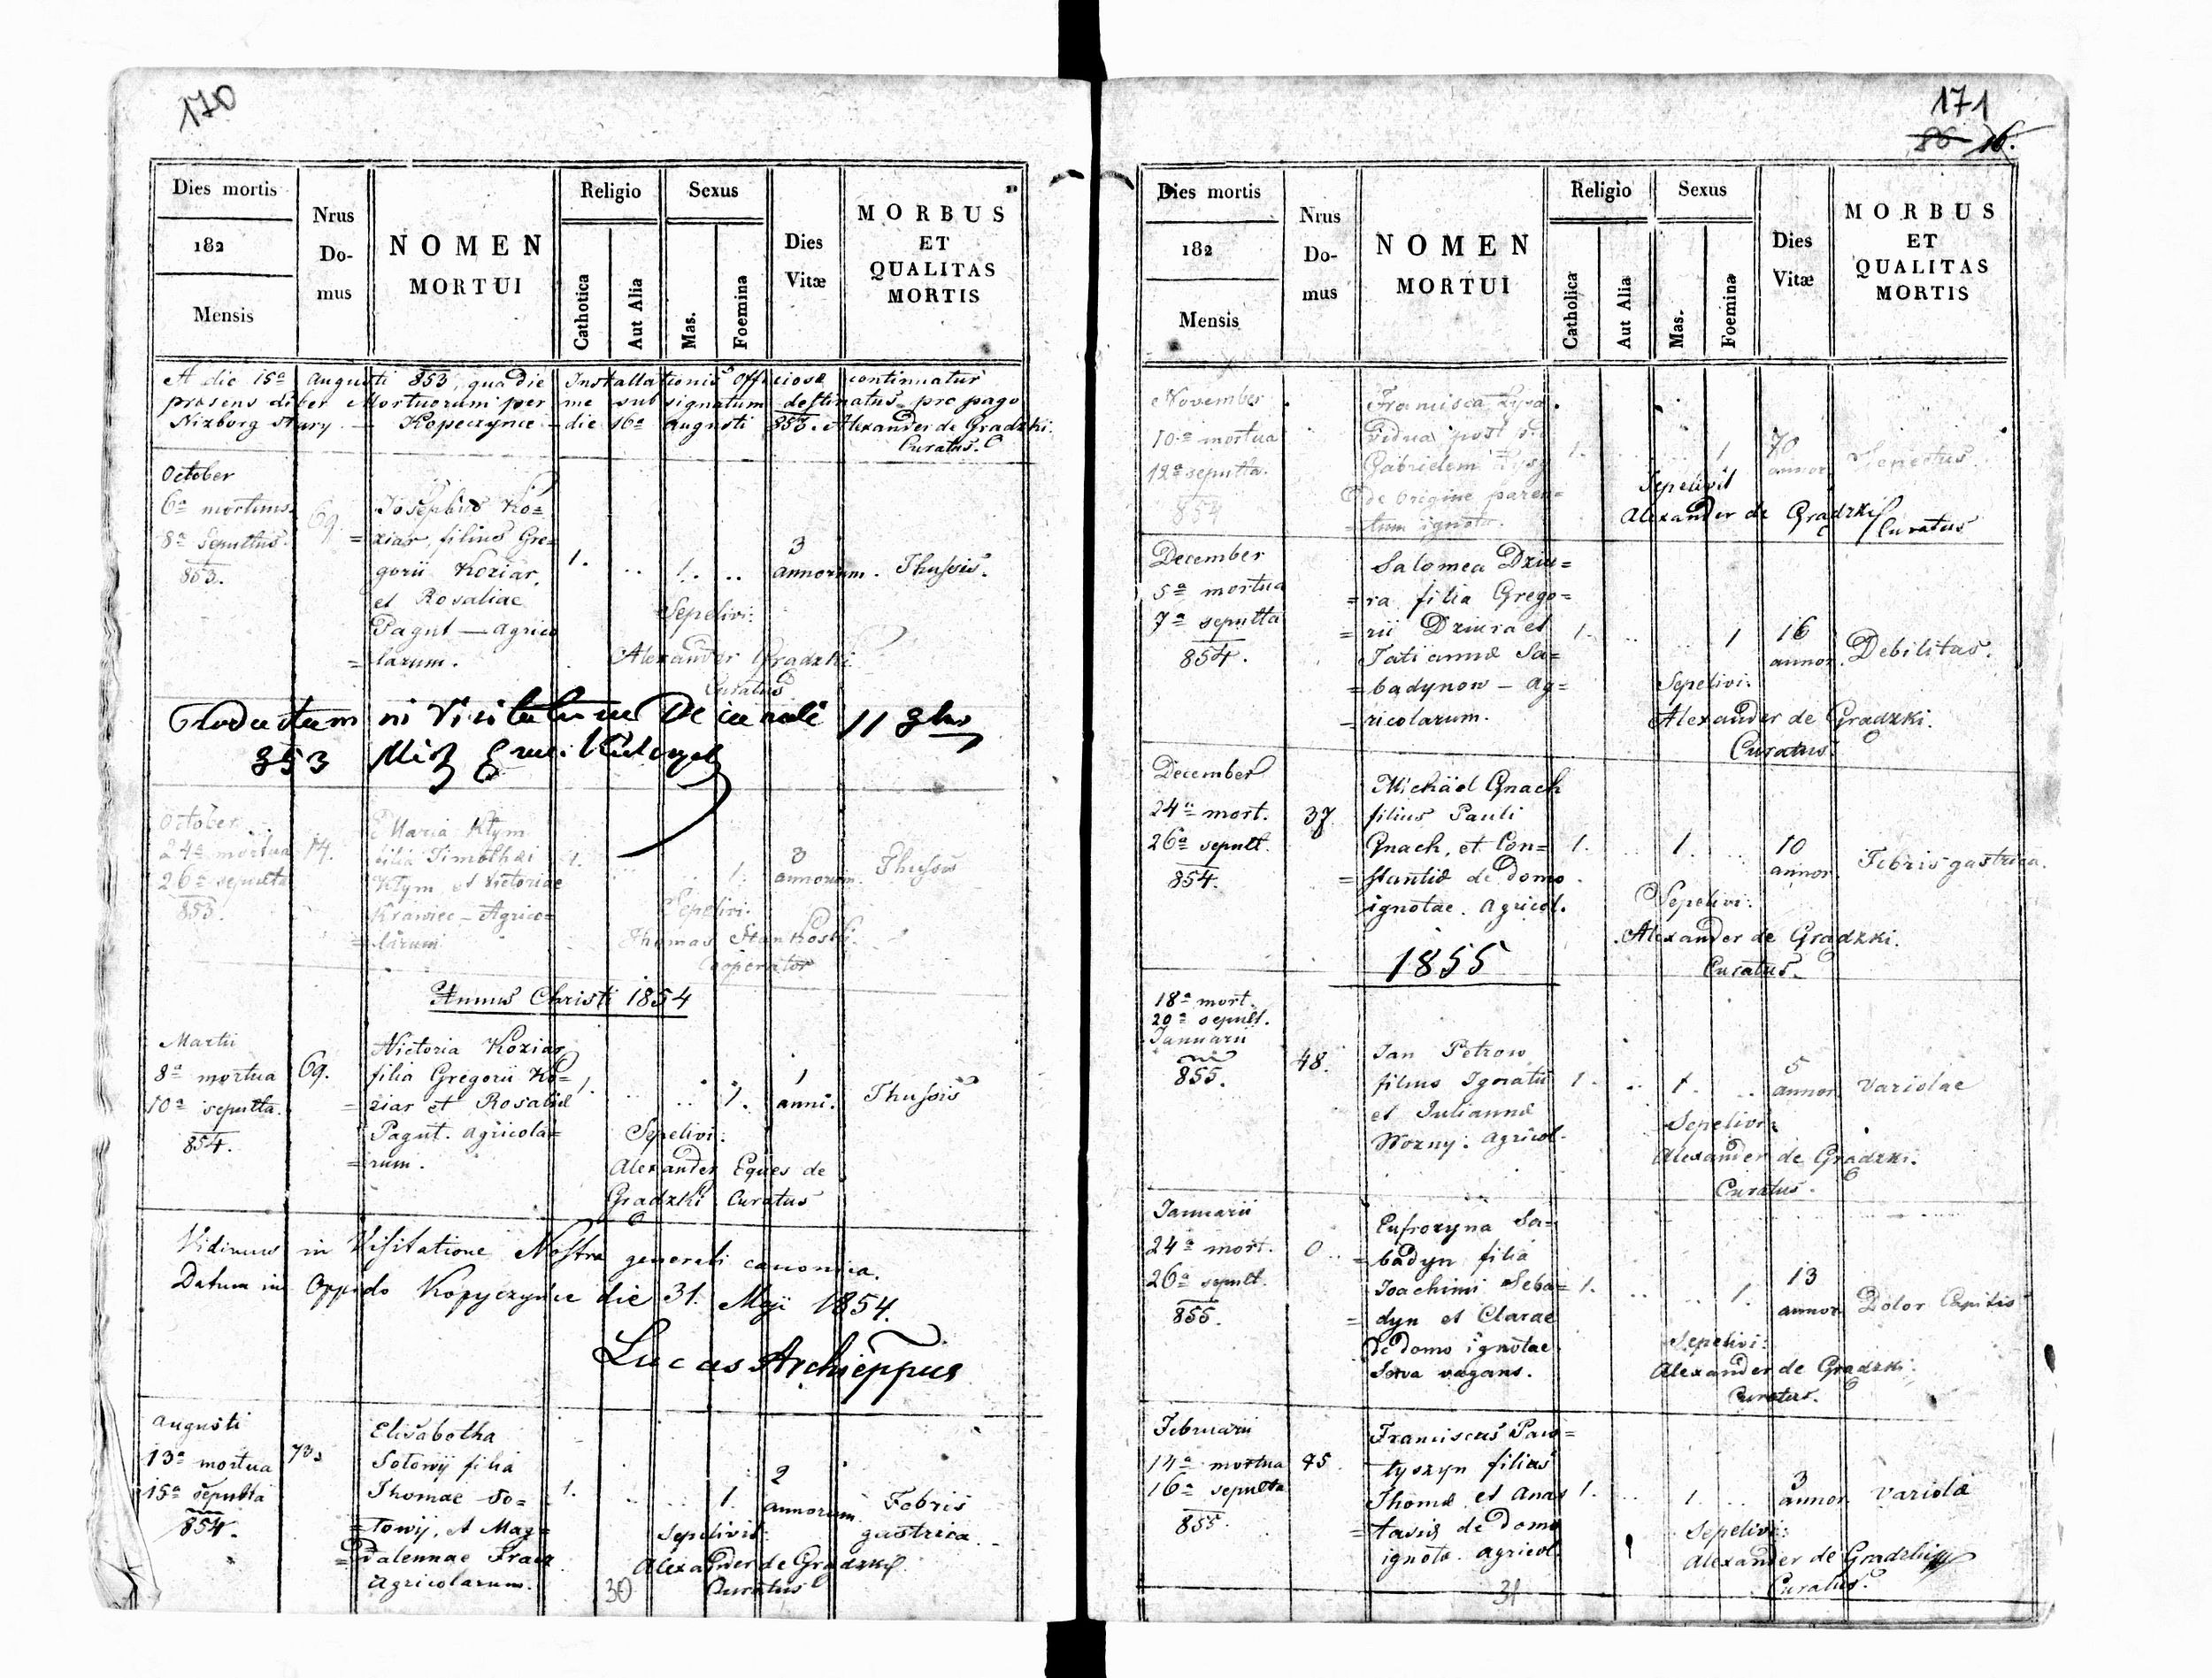 170
Dies mortis
182
Mensis
Nrus
Do-
mus
NOMEN
MORTUI
Religio
Catholica
Aut Alia
Sexus
Mas.
Foemina
Dies
Vitæ
MORBUS
ET
QUALITAS
MORTIS
A die 15a Augusti 853, qua die Installationis officiosæ continuatur
præsens Liber Mortuorum per me subsignatum destinatus pro pago
Nizborg Stary — Kopeczynce — die 16a Augusti 853. Alexander de Gradzki
Curatus.
October
6a mortuus
8a Sepultus.
853.
69.
Josephus Ko=
=ziar, filius Gre=
gorii Koziar,
et Rosaliae
Pagut — Agrico
=larum.
1.
..
1.
..
3
annorum.
Thussis.
Sepelivi:
Alexander Gradzki
Curatus
Productum in Visitatione Decanali 11 8bris
853
October
24a mortua
26a sepulta
853.
14.
Maria Klym
filia Timothei
Klym et Victoriae
Krawiec — Agrico=
=larum
1.
1.
3
annorum.
Thussis
Sepelivi:
Thomas Stankoski
Cooperator
Annus Christi 1854
Martii
8a mortua
10a sepulta.
854.
69.
Victoria Koziar
filia Gregorii Ko=
=ziar et Rosaliæ
Pagut. Agricola=
=rum.
1.
1.
1
anni.
Thussis
Sepelivi:
Alexander Eques de
Gradzki Curatus
Vidimus in Visitatione Nostra generali canonica.
Datum in Oppido Kopyczynce die 31. Maji 1854.
Lucas Archieppus
Augusti
13a mortua
15a sepulta
854.
73.
Elisabetha
Sotowij filia
Thomae So=
=towij, et Mag=
=dalennae
Agricolarum.
1.
1.
2
annorum.
Febris
gastrica
Sepelivit:
Alexander de Gradzki
Curatus
30
171
86 16.
Dies mortis
182
Mensis
Nrus
Do-
mus
NOMEN
MORTUI
Religio
Catholica
Aut Alia
Sexus
Mas.
Foemina
Dies
Vitæ
MORBUS
ET
QUALITAS
MORTIS
November
10a mortua
12a sepulta.
854
Francisca Lysa
Vidua post
Gabrielem
de Origine paren=
=tum ignota.
1.
1
70
annor.
Senectus
Sepelivit
Alexander de Gradzki
Curatus
December
5a mortua
7a sepulta
854.
Salomea Dziu=
=ra filia Grego=
=rii Dziura et
Tatiannæ Sa=
=badynow — Ag=
=ricolarum.
1.
1
16
annor.
Debilitas.
Sepelivi:
Alexander de Gradzki.
Curatus.
December
24a mort.
26a sepult.
854.
37
Michäel Gnach
filius Pauli
Gnach, et Con=
=stantiæ de domo
ignotae. Agricol.
1.
1.
10
annor.
Febris gastrica.
Sepelivi:
Alexander de Gradzki.
Curatus.
1855
18a mort.
20a sepult.
Januarii
855.
48.
Jan Petrow
filius Ignatii
et Juliannæ
Wozny. Agricol.
1.
1.
5
annor.
Variolae
Sepelivi:
Alexander de Gradzki.
Curatus.
Januarii
24a mort.
26a sepult.
855.
0
Eufrozyna Sa=
=badyn filia
Joachimi Seba=
=dyn et Clarae
de domo ignotae.
Serva vagans.
1.
1.
13
annor.
Dolor Capitis
Sepelivi:
Alexander de Gradzki.
Curatus.
Februarii
14a mortua
16a sepulta
855.
Franciscus Paw=
=tyszyn filius
Thomæ et Anas
=tasiæ de domo
ignota. Agricol.
1.
1.
3
annor.
Variolæ
Sepelivi:
Alexander de Gradzki
Curatus.
31